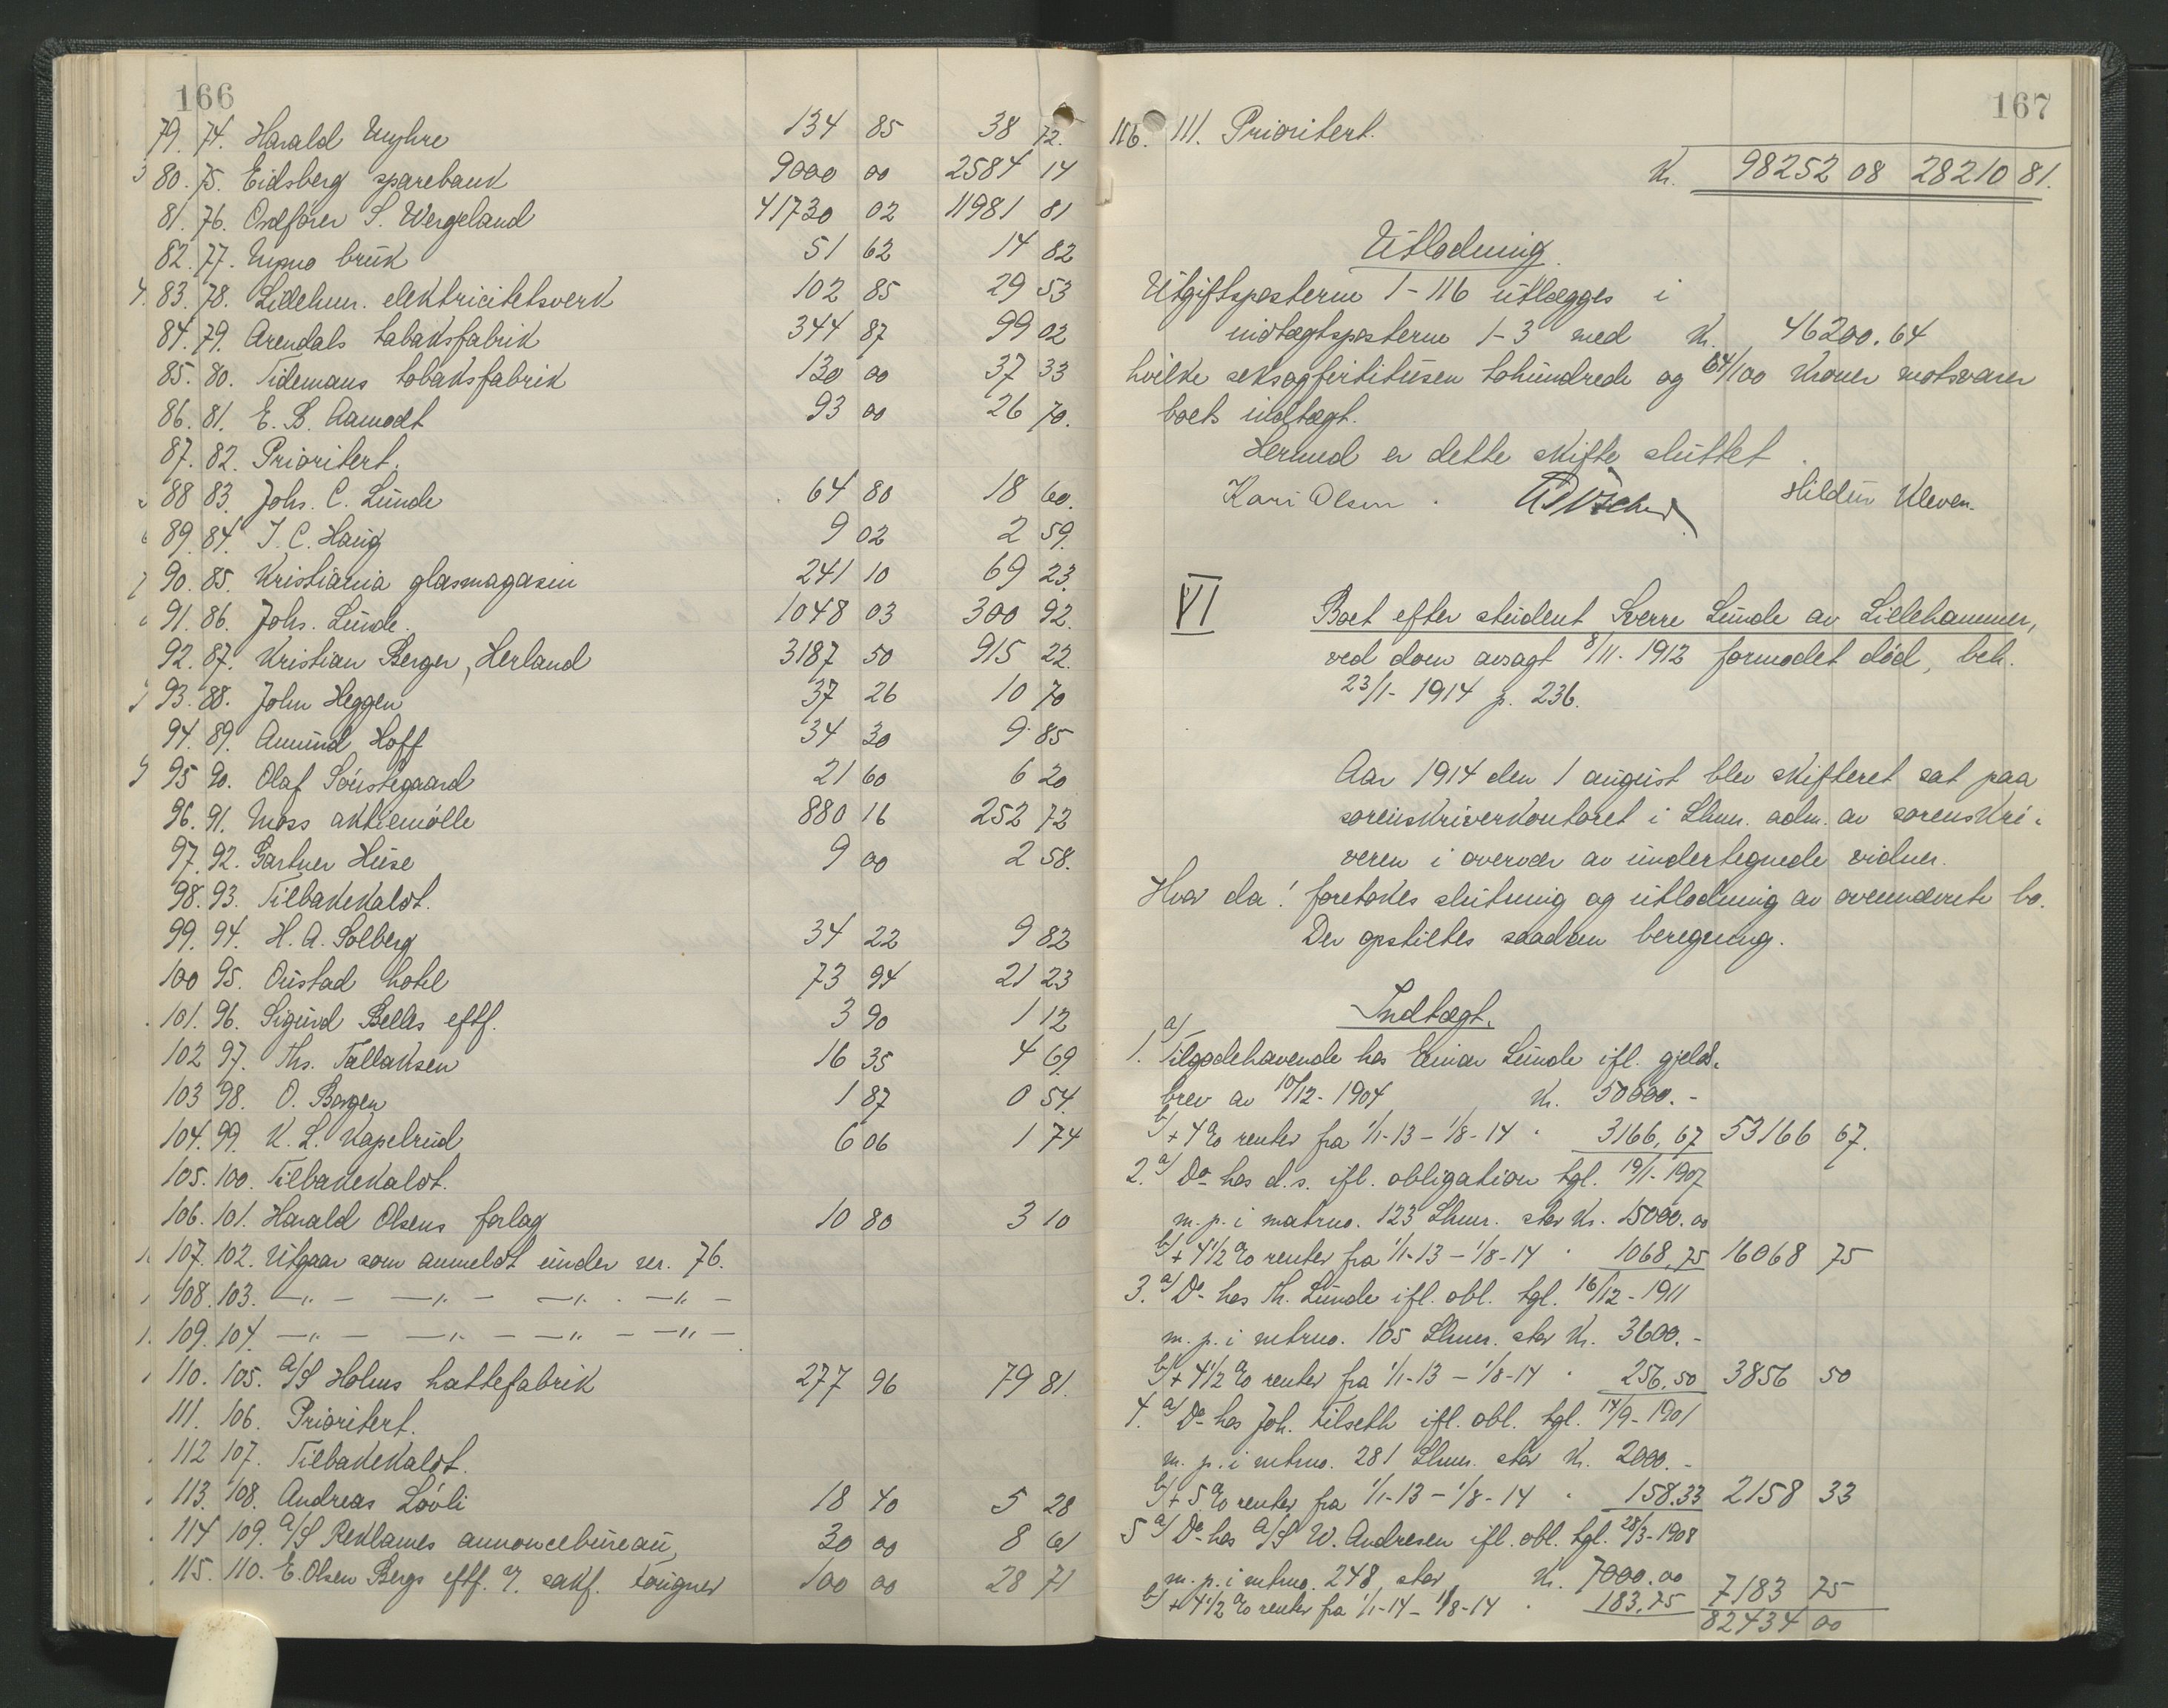 166
79. 74. Harald Myhre 134 85 38 72.
80. 75. Eidsberg sparebank 9000 00 2584 14
81. 76. Ordfører S. Wergeland 41730 02 11981 81
82. 77. bruk 51 62 14 82
83. 78. Lillehm. elektricitetsverk 102 85 29 53
84. 79. Arendals tabaksfabrik 344 87 99 02
85. 80. Tidemans tobaksfabrik 130 00 37 33
86. 81. E. B. Aamodt 93 00 26 70.
87. 82. Prioritert.
88 83. Johs. C. Lunde 64 80 18 60.
89. 84. J. C. Haug 9 02 2 59.
90. 85. Kristiania glasmagasin 241 10 69 23.
91. 86. Johs. Lunde. 1048 03 300 92.
92. 87. Kristian Berger, Herland 3187 50 915 22.
93. 88. John Heggen 37 26 10 70
94. 89. Amund Hoff 34 30 9 85
95 90. Olaf Sørstegaard 21 60 6 20
96. 91. Moss aktiemølle 880 16 252 72
97. 92. Gartner Huse 9 00 2 58.
98. 93. Tilbakekaldt.
99. 94. H. A. Solberg 34 22 9 82
100 95. Onstad hotel 73 94 21 23
101. 96. Sigurd Belles eftf. 3 90 1 12
102 97. Ths. Tallaksen 16 35 4 69.
103 98. O. Borgen 1 87 0 54.
104. 99. K. L. Kapelrud 6 06 1 74
105. 100. Tilbakekaldt.
106. 101. Harald Olsens forlag 10 80 3 10
107. 102. Utgaar som anmeldt under nr. 76.
108. 103. —〃— —〃— —〃— —〃—
109. 104. —〃— —〃— —〃— —〃—
110. 105. A/S Holms hattefabrik 277 96 79 81.
111. 106. Prioritert.
112 107. Tilbakekaldt.
113. 108. Andreas Løvli 18 40 5 28
114 109. A/S Reklames annoncebureau 30 00 8 61
115. 110. E. Olsen Bergs eftf. v. sakf. Lougner 100 00 28 71
167
116. 111. Prioritert.
Kr. 98252 08 28210 81.
Utlodning.
Utgiftsposterne 1-116 utlægges i
indtægtsposterne 1-3 med Kr. 46200.64
hvilke seksogfirtitusen tohundrede og 64/100 kroner motsvarer
boets indtægt.
Hermed er dette skifte sluttet.
Kari Olsen. Hildur Kleven.
VI Boet efter student Sverre Lunde av Lillehammer,
ved dom avsagt 8/11-1912 formodet død, beh.
23/1-1914 p. 236.
Aar 1914 den 1 august blev skifteret sat paa
sorenskriverkontoret i Lhmr. adm. av sorenskri-
veren i overvær av undertegnede vidner.
Hvor da: foretokes slutning og utlodning av ovennævnte bo.
Der opstiltes saadan beregning.
Indtægt.
1. a/ Tilgodehavende hos Einar Lunde ifl. gjelds-
brev av 10/12-1904 Kr. 50000.-
b/ + 4 % renter fra 1/1-13 - 1/8-14 " 3166,67 53166 67.
2. a/ Do hos d.s. ifl. obligation tgl. 19/1-1907
m. p. i matrno. 123 Lhmr. stor Kr. 15000.00
b/ + 4 1/2 % renter fra 1/1-13 - 1/8-14 " 1068,75 16068 75
3. a/ Do hos Th. Lunde ifl. obl. tgl. 16/12-1911
m. p. i mtrno. 105 Lhmr. stor Kr. 3600.-
b/ + 4 1/2 % renter fra 1/1-13 - 1/8-14 " 256,50 3856 50
4. a/ Do hos Joh. Filseth ifl. obl. tgl. 14/9-1901
m. p. i mtrno. 281 Lhmr. stor Kr. 2000.-
b/ + 5 % renter fra 1/1-13 - 1/8-14 " 158.33 2158 33
5 a/ Do hos A/S W. Andresen ifl. obl. tgl. 28/3-1908
m. p. i mtrno. 248, stor Kr. 7000.00
b/ + 4 1/2 % renter fra 1/1-14 - 1/8-14 " 183.75 7183 75
82434 00